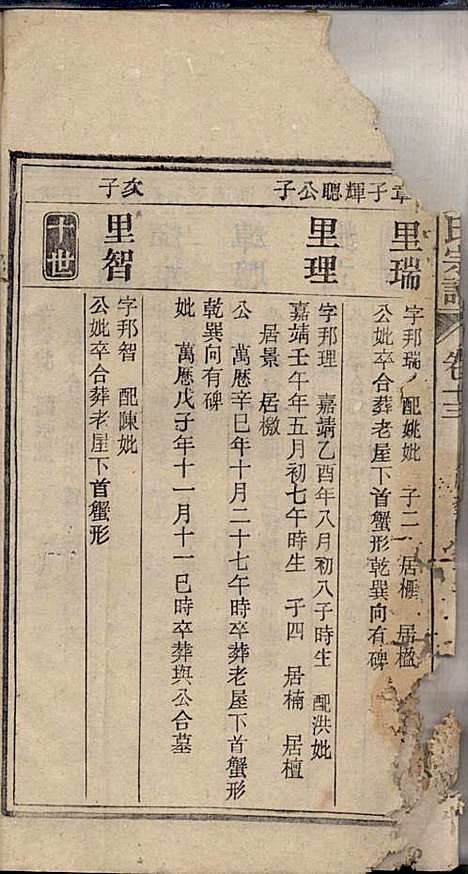 氏宗譜 卷十三
章子輝聰公子
里瑞
字邦瑞 配姚妣 子二 居榧 居楹
公妣卒合葬老屋下首蟹形乾巽向有碑
里理
字邦理 嘉靖乙酉年八月初八子時生 配洪妣
嘉靖壬午年五月初七午時生 子四 居楠 居檀
居景 居檄
公 萬歷辛巳年十月二十七午時卒葬老屋下首蟹形
乾巽向有碑
妣 萬歷戊子年十一月十一巳時卒葬與公合墓
次子
里智
字邦智 配陳妣
公妣卒合葬老屋下首蟹形
十世